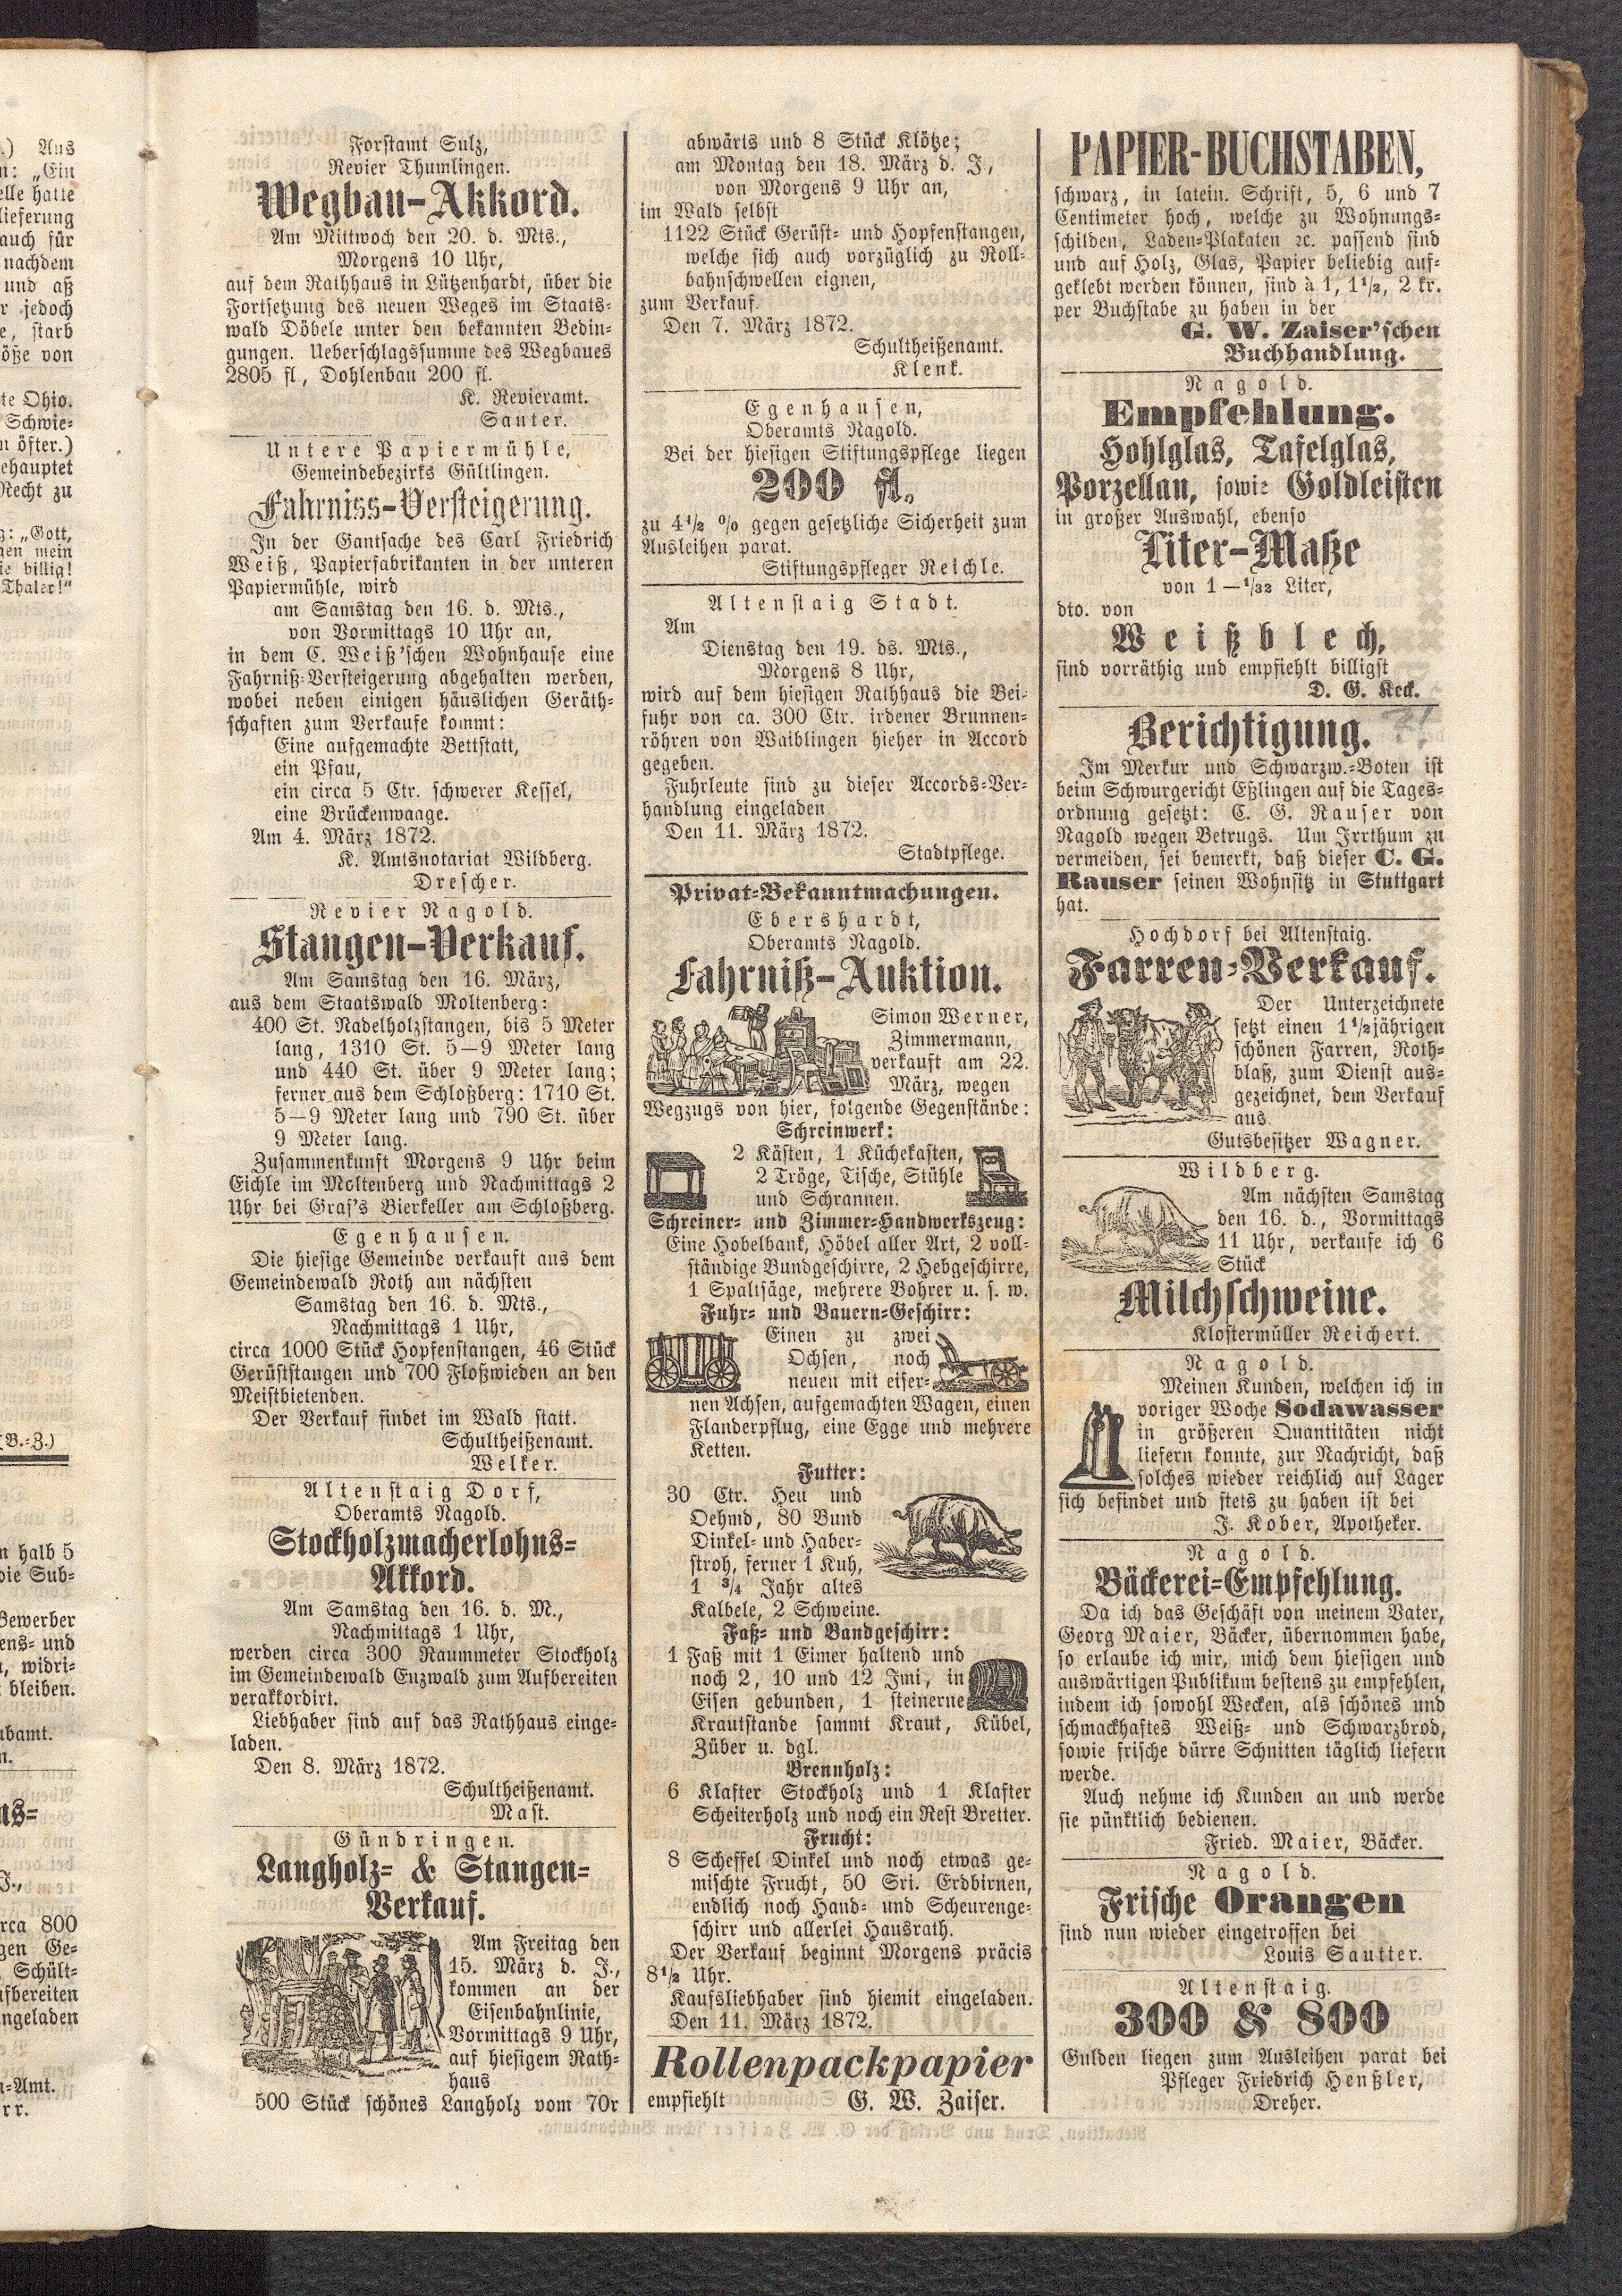 Forstamt Sulz,
Revier Thumlingen.
Wegbau-Akkord.
Am Mittwoch den 20. d. Mts.,
Morgens 10 Uhr,
auf dem Rathhaus in Lützenhardt, über die
Fortsetzung des neuen Weges im Staats-
wald Döbele unter den bekannten Bedin-
gungen. Ueberschlagssumme des Wegbaues
2805 fl., Dohlenbau 200 fl.
K. Revieramt.
Sauter.
Untere Papiermühle,
Gemeindebezirks Gültlingen.
Fahrniss-Versteigerung.
In der Gantsache des Carl Friedrich
Weiß, Papierfabrikanten in der unteren
Papiermühle, wird
am Samstag den 16. d. Mts.,
von Vormittags 10 Uhr an,
in dem C. Weiß'schen Wohnhause eine
Fahrniß-Versteigerung abgehalten werden,
wobei neben einigen häuslichen Geräth-
schaften zum Verkaufe kommt:
Eine aufgemachte Bettstatt,
ein Pfau,
ein circa 5 Ctr. schwerer Kessel,
eine Brückenwaage.
Am 4. März 1872.
K. Amtsnotariat Wildberg.
Drescher.
Revier Nagold.
Stangen-Verkauf.
Am Samstag den 16. März,
aus dem Staatswald Moltenberg:
400 St. Nadelholzstangen, bis 5 Meter
lang, 1310 St. 5—9 Meter lang
und 440 St. über 9 Meter lang;
ferner aus dem Schloßberg: 1710 St.
5—9 Meter lang und 790 St. über
9 Meter lang.
Zusammenkunft Morgens 9 Uhr beim
Eichle im Moltenberg und Nachmittags 2
Uhr bei Graf's Bierkeller am Schloßberg.
Egenhausen.
Die hiesige Gemeinde verkauft aus dem
Gemeindewald Roth am nächsten
Samstag den 16. d. Mts.,
Nachmittags 1 Uhr,
circa 1000 Stück Hopfenstangen, 46 Stück
Gerüststangen und 700 Floßwieden an den
Meistbietenden.
Der Verkauf findet im Wald statt.
Schultheißenamt.
Welker.
Altenstaig Dorf,
Oberamts Nagold.
Stockholzmacherlohns-
Akkord.
Am Samstag den 16. d. M.,
Nachmittags 1 Uhr,
werden circa 300 Raummeter Stockholz
im Gemeindewald Enzwald zum Aufbereiten
verakkordirt.
Liebhaber sind auf das Rathhaus einge-
laden.
Den 8. März 1872.
Schultheißenamt.
Mast.
Gündringen.
Langholz- & Stangen-
Verkauf.
Am Freitag den
15. März d. J.,
kommen an der
Eisenbahnlinie,
Vormittags 9 Uhr,
auf hiesigem Rath-
haus
500 Stück schönes Langholz vom 70r
abwärts und 8 Stück Klötze;
am Montag den 18. März d. J.,
von Morgens 9 Uhr an,
im Wald selbst
1122 Stück Gerüst- und Hopfenstangen,
welche sich auch vorzüglich zu Roll-
bahnschwellen eignen,
zum Verkauf.
Den 7. März 1872.
Schultheißenamt.
Klenk.
Egenhausen,
Oberamts Nagold.
Bei der hiesigen Stiftungspflege liegen
200 fl.
zu 4½ % gegen gesetzliche Sicherheit zum
Ausleihen parat.
Stiftungspfleger Reichle.
Altenstaig Stadt.
Am
Dienstag den 19. ds. Mts.,
Morgens 8 Uhr,
wird auf dem hiesigen Rathhaus die Bei-
fuhr von ca. 300 Ctr. irdener Brunnen-
röhren von Waiblingen hieher in Accord
gegeben.
Fuhrleute sind zu dieser Accords-Ver-
handlung eingeladen
Den 11. März 1872.
Stadtpflege.
Privat-Bekanntmachungen.
Ebershardt,
Oberamts Nagold.
Fahrniß-Auktion.
Simon Werner,
Zimmermann,
verkauft am 22.
März, wegen
Wegzugs von hier, folgende Gegenstände:
Schreinwerk:
2 Kästen, 1 Küchekasten,
2 Tröge, Tische, Stühle
und Schrannen.
Schreiner- und Zimmer-Handwerkszeug:
Eine Hobelbank, Höbel aller Art, 2 voll-
ständige Bundgeschirre, 2 Hebgeschirre,
1 Spaltsäge, mehrere Bohrer u. s. w.
Fuhr- und Bauern-Geschirr:
Einen zu zwei
Ochsen, noch
neuen mit eiser-
nen Achsen, aufgemachten Wagen, einen
Flanderpflug, eine Egge und mehrere
Ketten.
Futter:
30 Ctr. Heu und
Oehmd, 80 Bund
Dinkel- und Haber-
stroh, ferner 1 Kuh,
1 ¾ Jahr altes
Kalbele, 2 Schweine.
Faß- und Bandgeschirr:
1 Faß mit 1 Eimer haltend und
noch 2, 10 und 12 Imi, in
Eisen gebunden, 1 steinerne
Krautstande sammt Kraut, Kübel,
Züber u. dgl.
Brennholz:
6 Klafter Stockholz und 1 Klafter
Scheiterholz und noch ein Rest Bretter.
Frucht:
8 Scheffel Dinkel und noch etwas ge-
mischte Frucht, 50 Sri. Erdbirnen,
endlich noch Hand- und Scheurenge-
schirr und allerlei Hausrath.
Der Verkauf beginnt Morgens präcis
8½ Uhr.
Kaufsliebhaber sind hiemit eingeladen.
Den 11. März 1872.
Rollenpackpapier
empfiehlt G. W. Zaiser.
PAPIER-BUCHSTABEN,
schwarz, in latein. Schrift, 5, 6 und 7
Centimeter hoch, welche zu Wohnungs-
schilden, Laden-Plakaten ꝛc. passend sind
und auf Holz, Glas, Papier beliebig auf-
geklebt werden können, sind à 1, 1½, 2 kr.
per Buchstabe zu haben in der
G. W. Zaiser'schen
Buchhandlung.
Nagold.
Empfehlung.
Hohlglas, Tafelglas,
Porzellan, sowie Goldleisten
in großer Auswahl, ebenso
Liter-Maße
von 1—1/32 Liter,
dto. von
Weißblech,
sind vorräthig und empfiehlt billigst
D. G. Keck.
Berichtigung.
Im Merkur und Schwarzw.-Boten ist
beim Schwurgericht Eßlingen auf die Tages-
ordnung gesetzt: C. G. Rauser von
Nagold wegen Betrugs. Um Irrthum zu
vermeiden, sei bemerkt, daß dieser C. G.
Rauser seinen Wohnsitz in Stuttgart
hat.
Hochdorf bei Altenstaig.
Farren-Verkauf.
Der Unterzeichnete
setzt einen 1½jährigen
schönen Farren, Roth-
blaß, zum Dienst aus-
gezeichnet, dem Verkauf
aus.
Gutsbesitzer Wagner.
Wildberg.
Am nächsten Samstag
den 16. d., Vormittags
11 Uhr, verkaufe ich 6
Stück
Milchschweine.
Klostermüller Reichert.
Nagold.
Meinen Kunden, welchen ich in
voriger Woche Sodawasser
in größeren Quantitäten nicht
liefern konnte, zur Nachricht, daß
solches wieder reichlich auf Lager
sich befindet und stets zu haben ist bei
J. Kober, Apotheker.
Nagold.
Bäckerei-Empfehlung.
Da ich das Geschäft von meinem Vater,
Georg Maier, Bäcker, übernommen habe,
so erlaube ich mir, mich dem hiesigen und
auswärtigen Publikum bestens zu empfehlen,
indem ich sowohl Wecken, als schönes und
schmackhaftes Weiß- und Schwarzbrod,
sowie frische dürre Schnitten täglich liefern
werde.
Auch nehme ich Kunden an und werde
sie pünktlich bedienen.
Fried. Maier, Bäcker.
Nagold.
Frische Orangen
sind nun wieder eingetroffen bei
Louis Sautter.
Altenstaig.
300 & 800
Gulden liegen zum Ausleihen parat bei
Pfleger Friedrich Henßler,
Dreher.